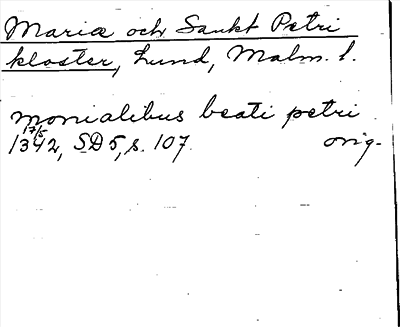 Maria och Sankt Petri
kloster, Lund, Malm. l.
monialibus beati petri
17/5
1342, SD5, s. 107. orig.